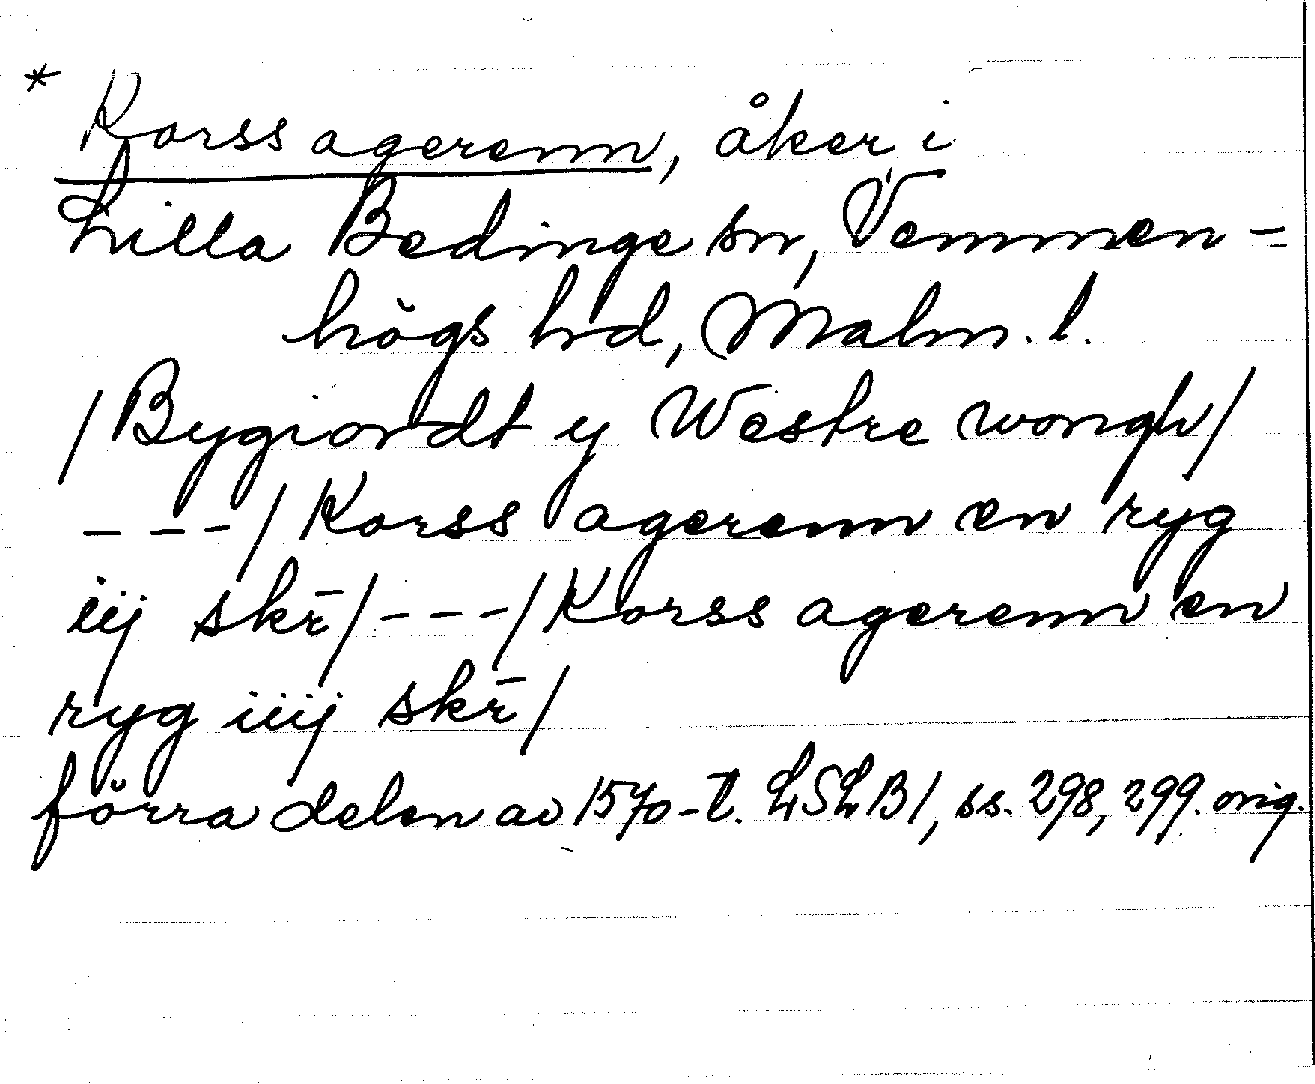 * Korss agerenn, åker i
Lilla Bedinge sn, Vemmen-
högs hd, Malm. l.
/Bygiordt y Westre wongh/
---/Korss agerenn en ryg
iij skr̄/---/Korss agerenn en
ryg iiij skr̄/
förra delen av 1570-t. LSLB1, ss. 298, 299. orig.